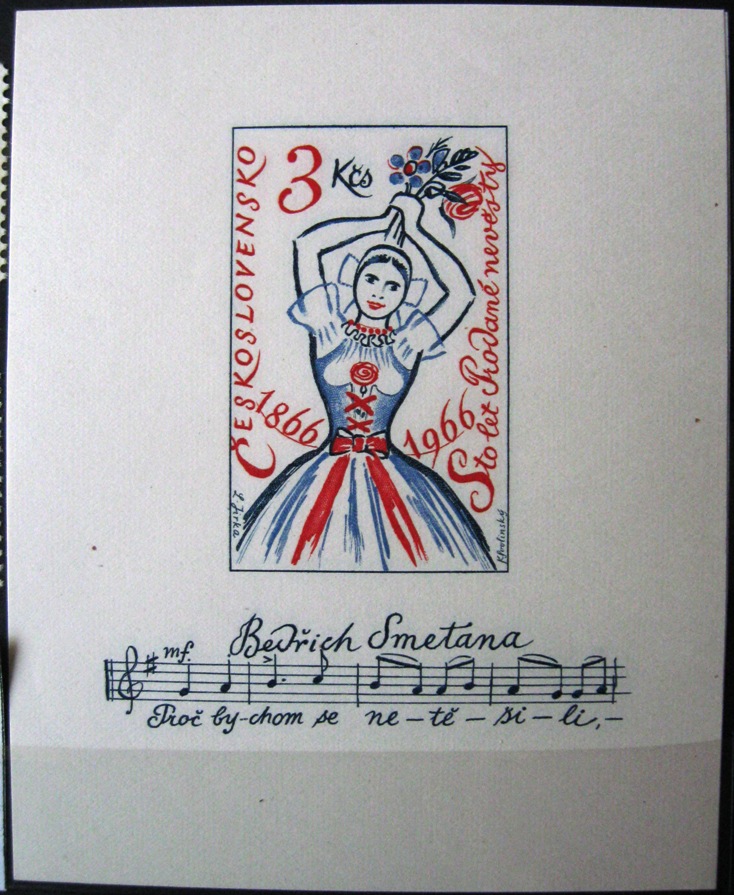 3 Kčs
ČESKOSLOVENSKO
Sto let Prodané nevěsty
1866
1966
L Jirka
KSvolinský
Bedřich Smetana
mf.
Proč by-chom se ne-tě-ši-li,-